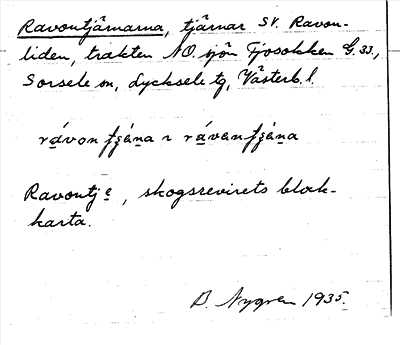 Ravontjärnarna, tjärnar SV. Ravon-
liden, trakten NO. sjön Tjosokken G. 33,
Sorsele sn, Lycksele tg, Västerb. l.
rávon t̯ʒána ɿ rávan t̯ʒána
Ravontj e, skogsrevirets blok-
karta.
B. Nygren 1935.